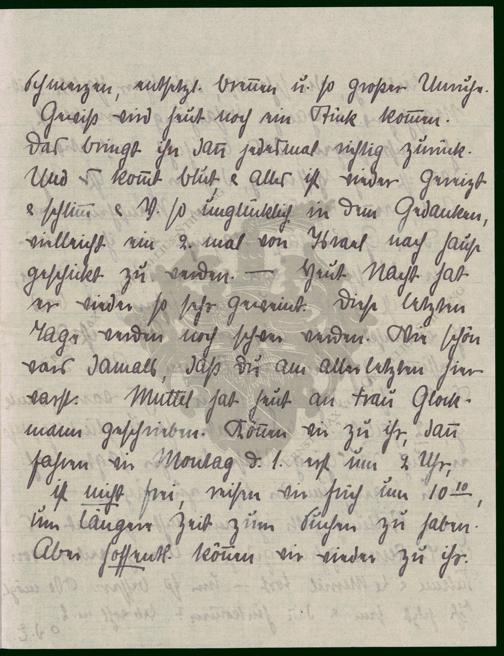 Schmerzen, entsetzl. brennen u. so großer Unruhe.
Gewiß wird heut noch ein Stück kommen.
Das bringt ihn dann jedesmal richtig zurück.
Und es kommt Blut & alles ist wieder gereizt
& schlimm & V. so unglücklich in dem Gedanken,
vielleicht ein 2. mal von Israel nach Hause
geschickt zu werden. — Heut Nacht hat
er wieder so sehr geweint. Diese letzten
Tage werden noch schwer werden. Wie schön
wars damals, daß du am allerletzten hier
warst. Muttel hat heut an Frau Glock-
mann geschrieben. Können wir zu ihr, dann
fahren wir Montag d. 1. erst um 2 Uhr,
ist nicht frei, reisen wir früh um 10 10,
um längere Zeit zum Suchen zu haben.
Aber hoffentl. können wir wieder zu ihr.